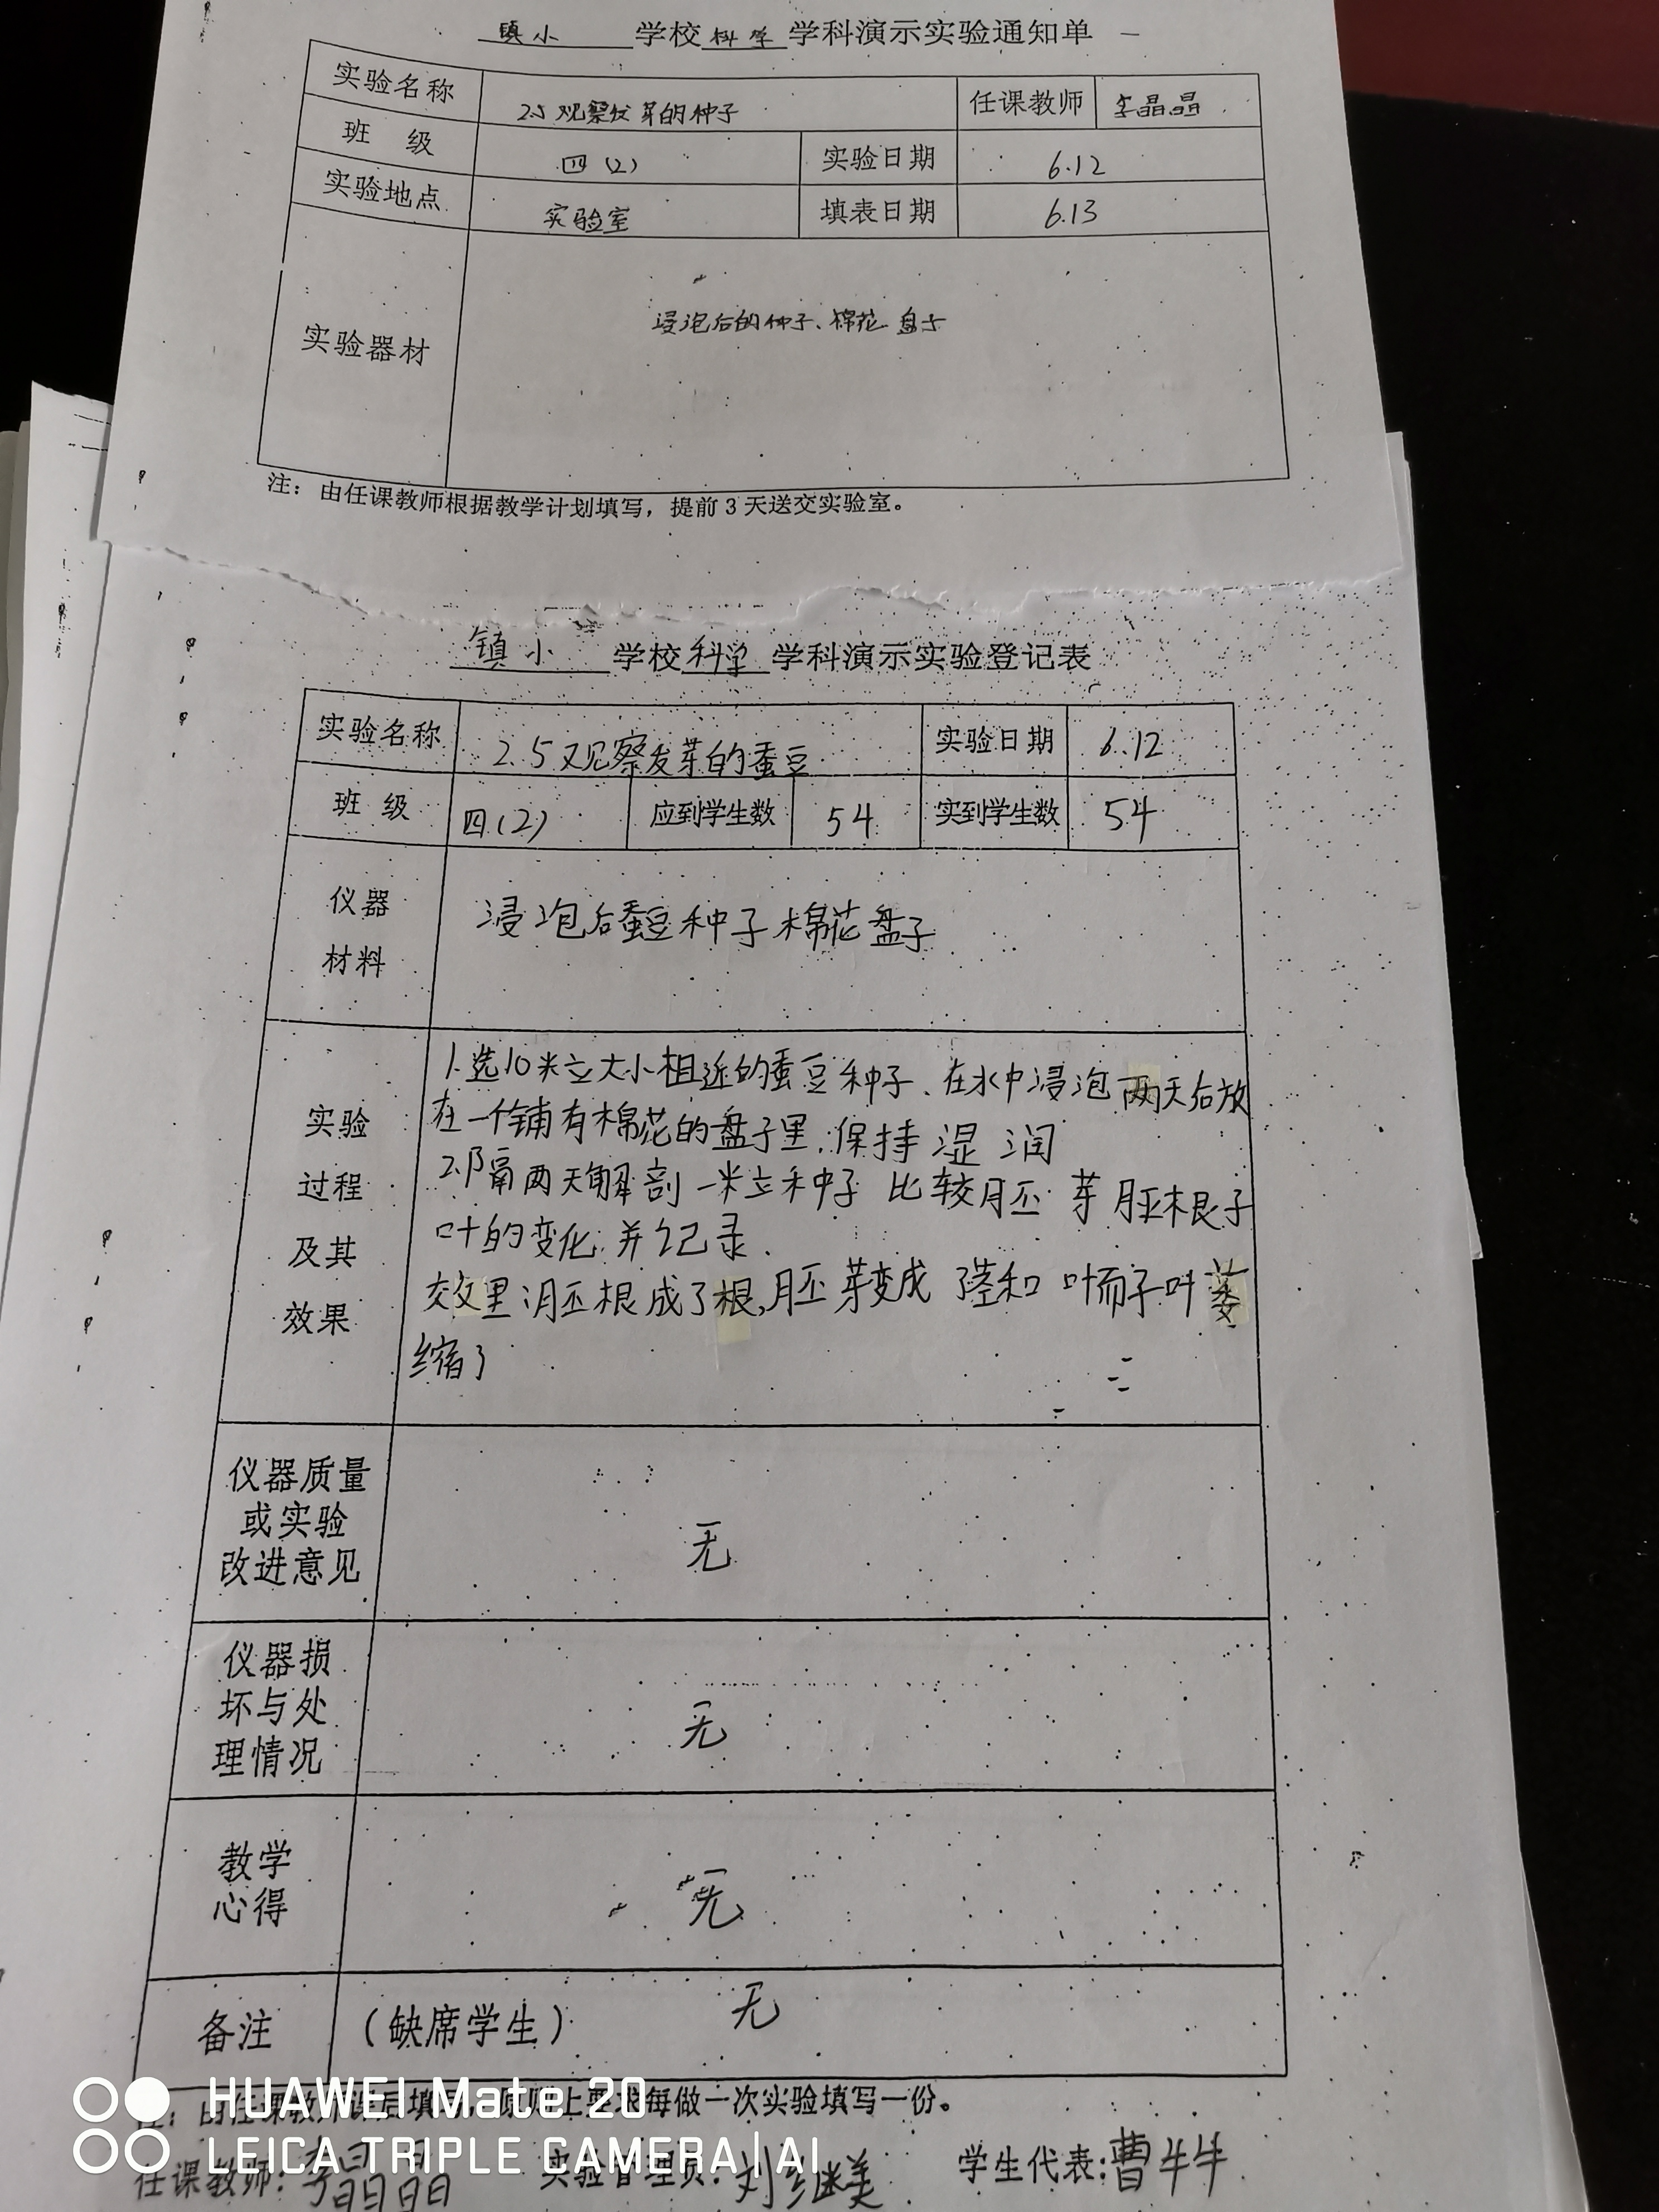 镇小 学校 科学 学科演示实验通知单
实验名称 2.5 观察发芽的种子 任课教师 李晶晶
班 级 四(2) 实验日期 6.12
实验地点 实验室 填表日期 6.13
实验器材 浸泡后的种子、棉花 盘子
注：由任课教师根据教学计划填写，提前3天送交实验室。
镇小 学校 科学 学科演示实验登记表
实验名称 2.5 观察发芽的蚕豆 实验日期 6.12
班 级 四(2) 应到学生数 54 实到学生数 54
仪器
材料
浸泡后蚕豆种子 棉花 盘子
实验
过程
及其
效果
1.选10粒大小相近的蚕豆种子、在水中浸泡两天后放
在一个铺有棉花的盘子里.保持湿润
2.隔两天解剖一粒种子 比较胚芽 胚根子
叶的变化.并记录.
效里:胚根成了根,胚芽变成了茎和叶而子叶萎
缩了
仪器质量
或实验
改进意见
无
仪器损
坏与处
理情况
无
教学
心得
无
备注 (缺席学生) 无
注：由任课教师课后填写，原则上要求每做一次实验填写一份。
任课教师：李晶晶 实验管理员：刘继美 学生代表：曹牛牛
HUAWEI Mate 20
LEICA TRIPLE CAMERA | AI